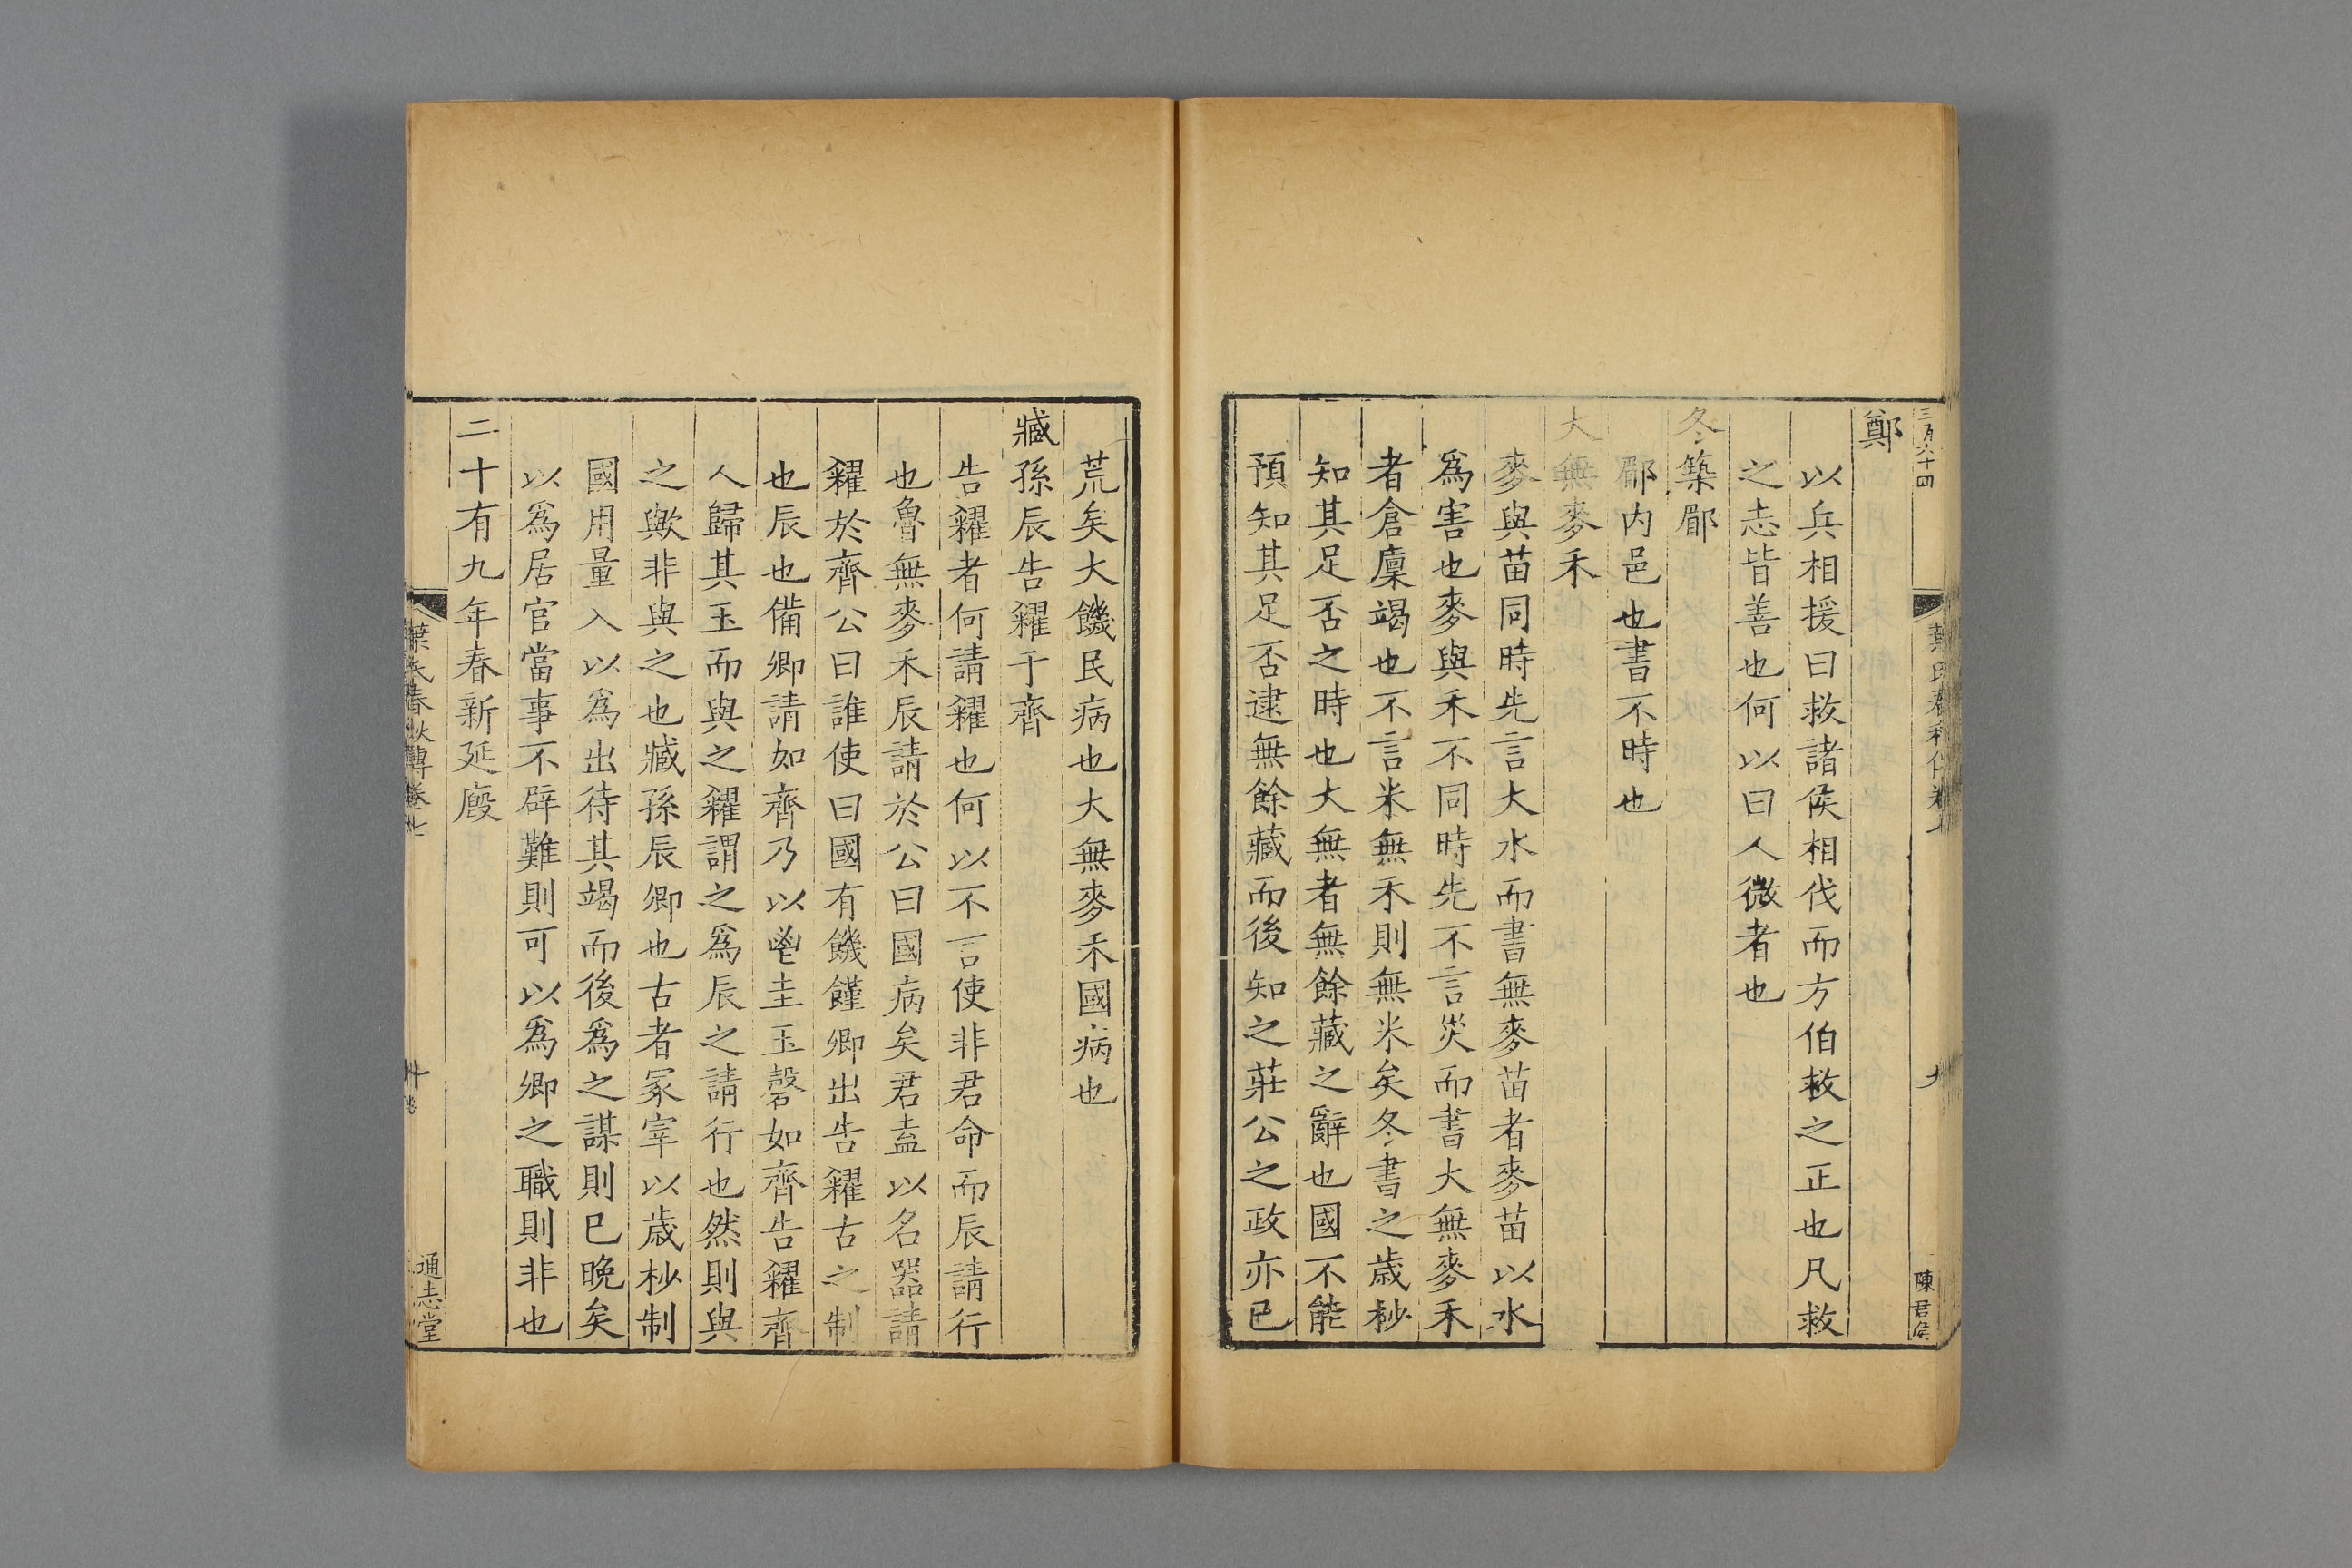 三百六十四
鄭
以兵相援曰救諸侯相伐而方伯救之正也凡救
之志皆善也何以曰人微者也
冬築郿
郿内邑也書不時也
大無麥禾
麥與苗同時先言大水而書無麥苗者麥苗以水
爲害也麥與禾不同時先不言災而書大無麥禾
者倉廩竭也不言米無禾則無米矣冬書之歲杪
知其足否之時也大無者無餘藏之辭也國不能
預知其足否逮無餘藏而後知之莊公之政亦已
陳君侯
荒矣大饑民病也大無麥禾國病也
臧孫辰告糴于齊
告糴者何請糴也何以不言使非君命而辰請行
也魯無麥禾辰請於公曰國病矣君盍以名器請
糴於齊公曰誰使曰國有饑饉卿出告糴古之制
也辰也備卿請如齊乃以鬯圭玉磬如齊告糴齊
人歸其玉而與之糴謂之爲辰之請行也然則與
之歟非與之也臧孫辰卿也古者冢宰以歲杪制
國用量入以爲出待其竭而後爲之謀則已晚矣
以爲居官當事不辟難則可以爲卿之職則非也
二十有九年春新延廄
葉氏春秋傳卷七
十
通志堂